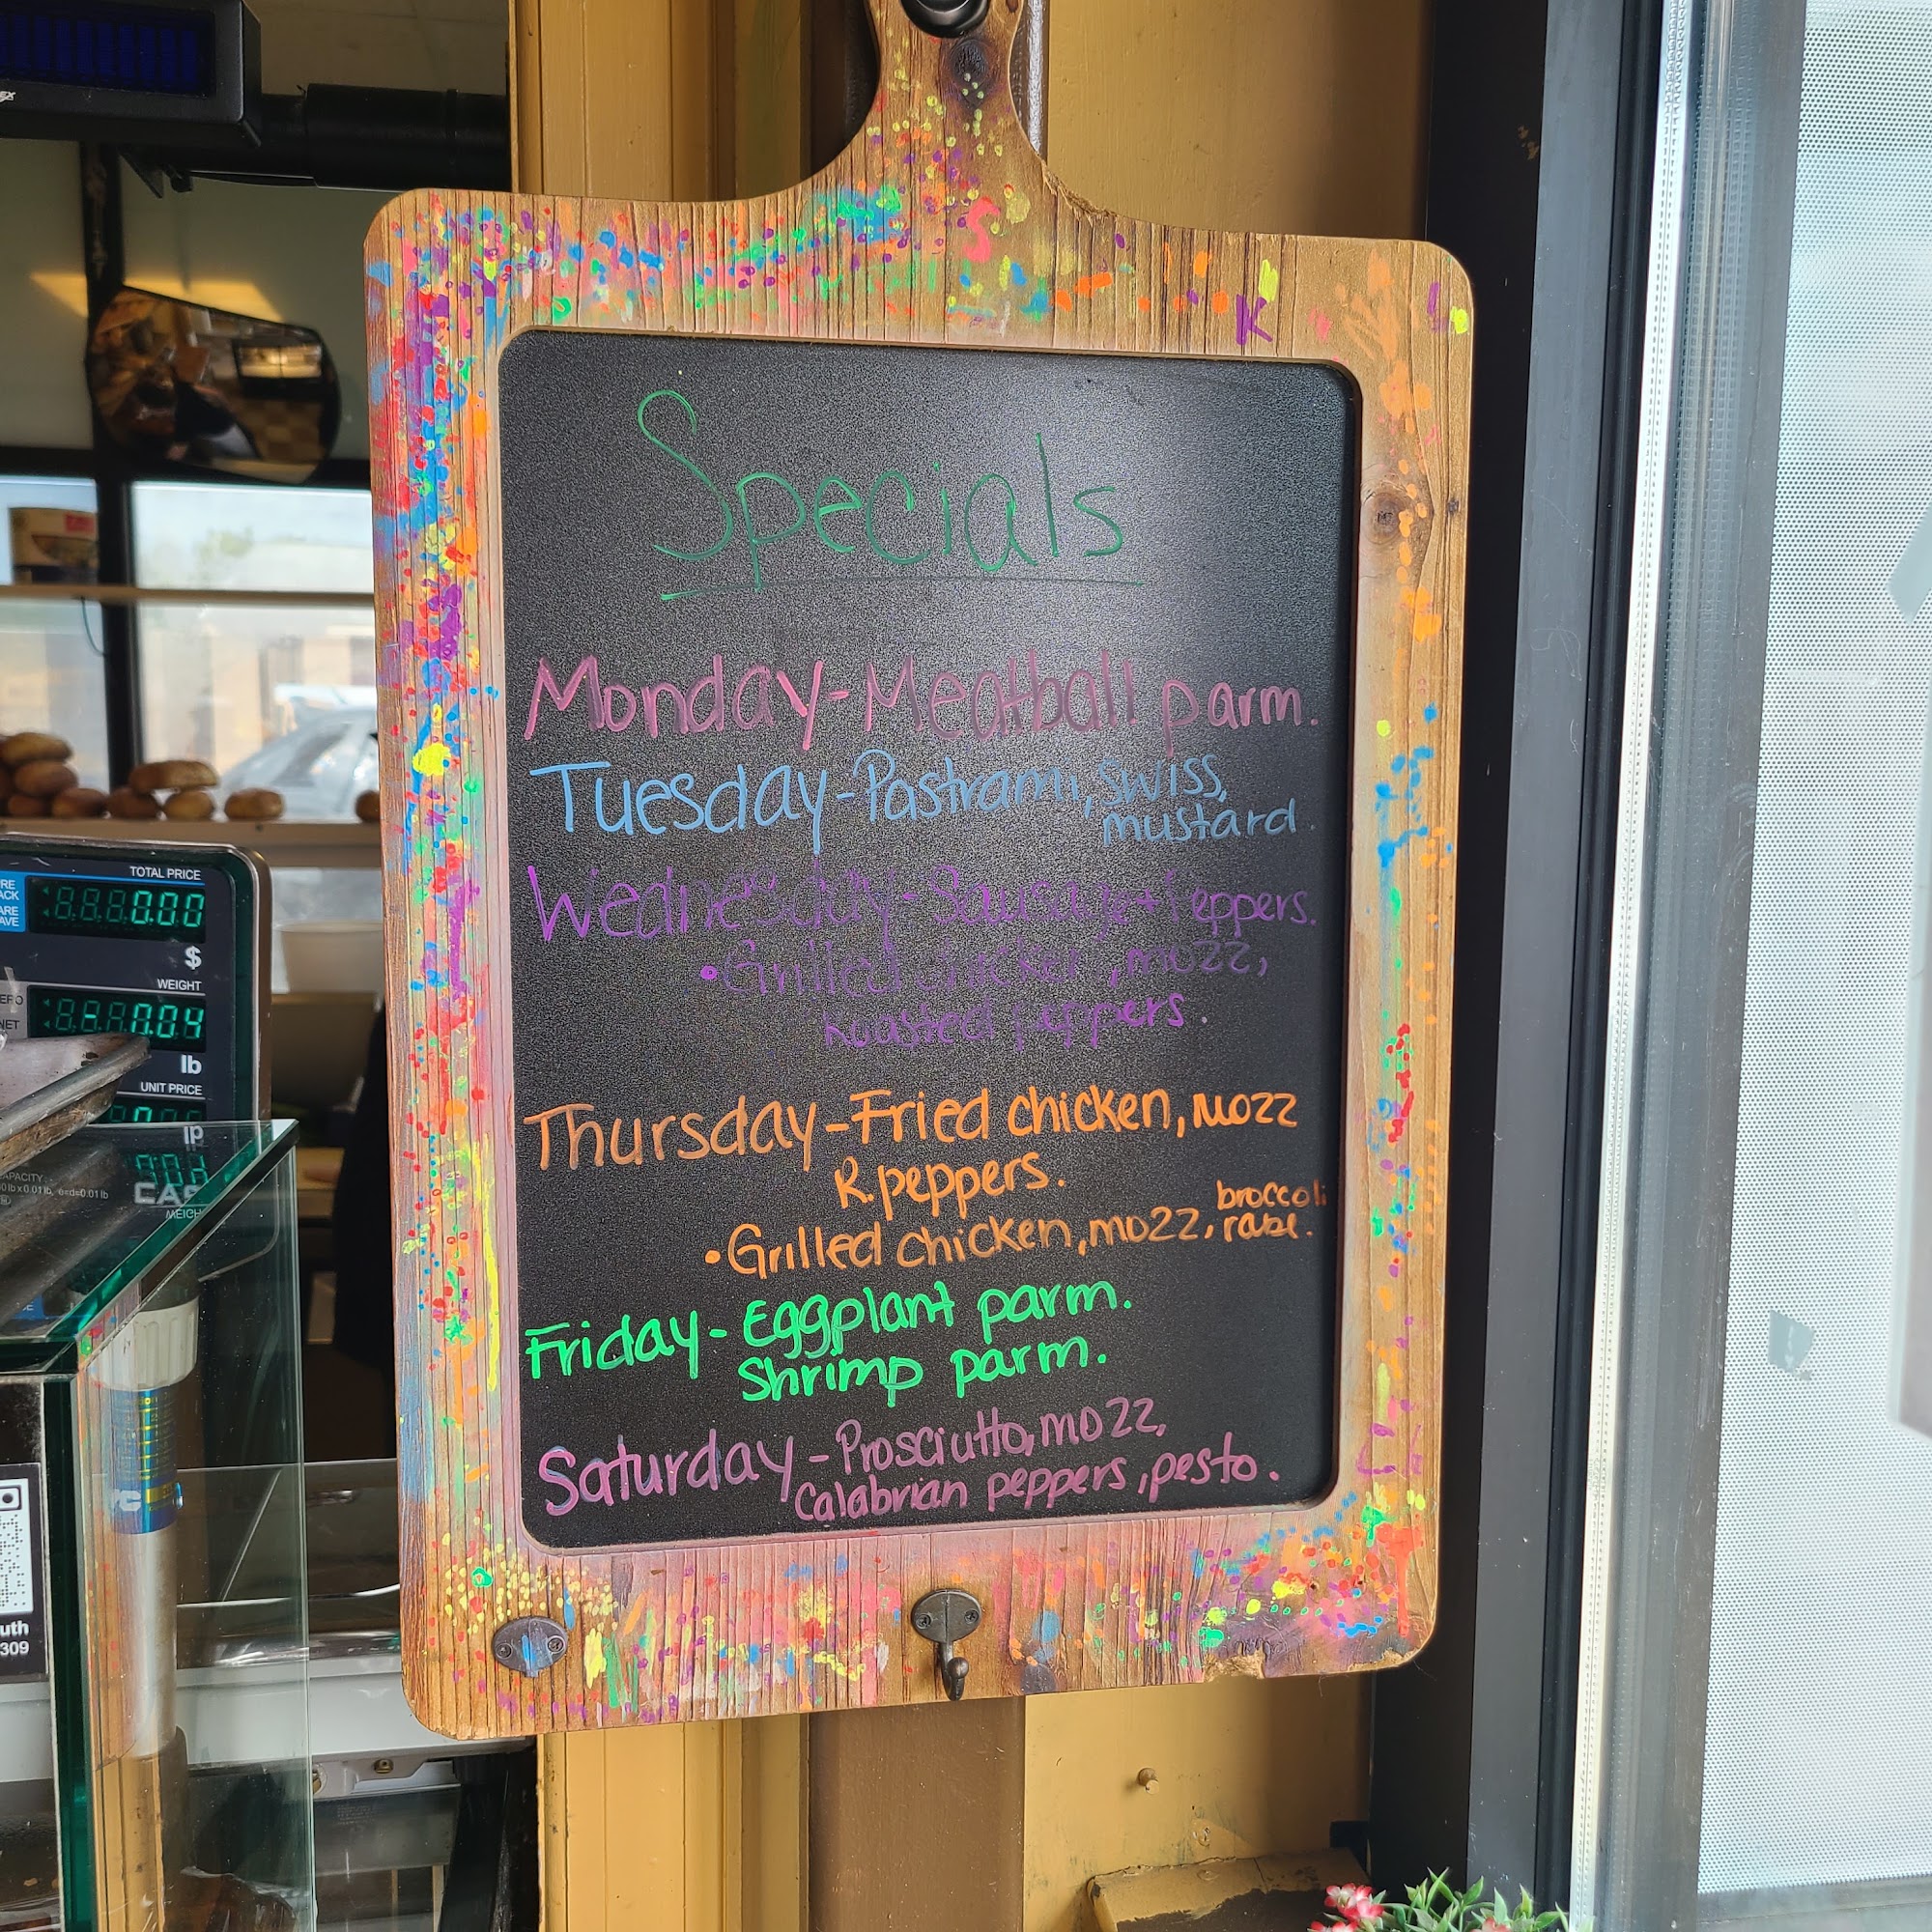 Specials
Monday-Meatball parm.
Tuesday-Pastrami, swiss,
mustard.
Wednesday-Sausage+Peppers.
•Grilled chicken, mozz,
Roasted peppers.
Thursday-Fried chicken, mozz
R.peppers.
•Grilled chicken, mozz, broccoli
rabe.
Friday-Eggplant parm.
Shrimp parm.
Saturday-Prosciutto, mozz,
Calabrian peppers, pesto.
S
K
TOTAL PRICE
0.00
$
WEIGHT
-0.04
lb
UNIT PRICE
NET
309